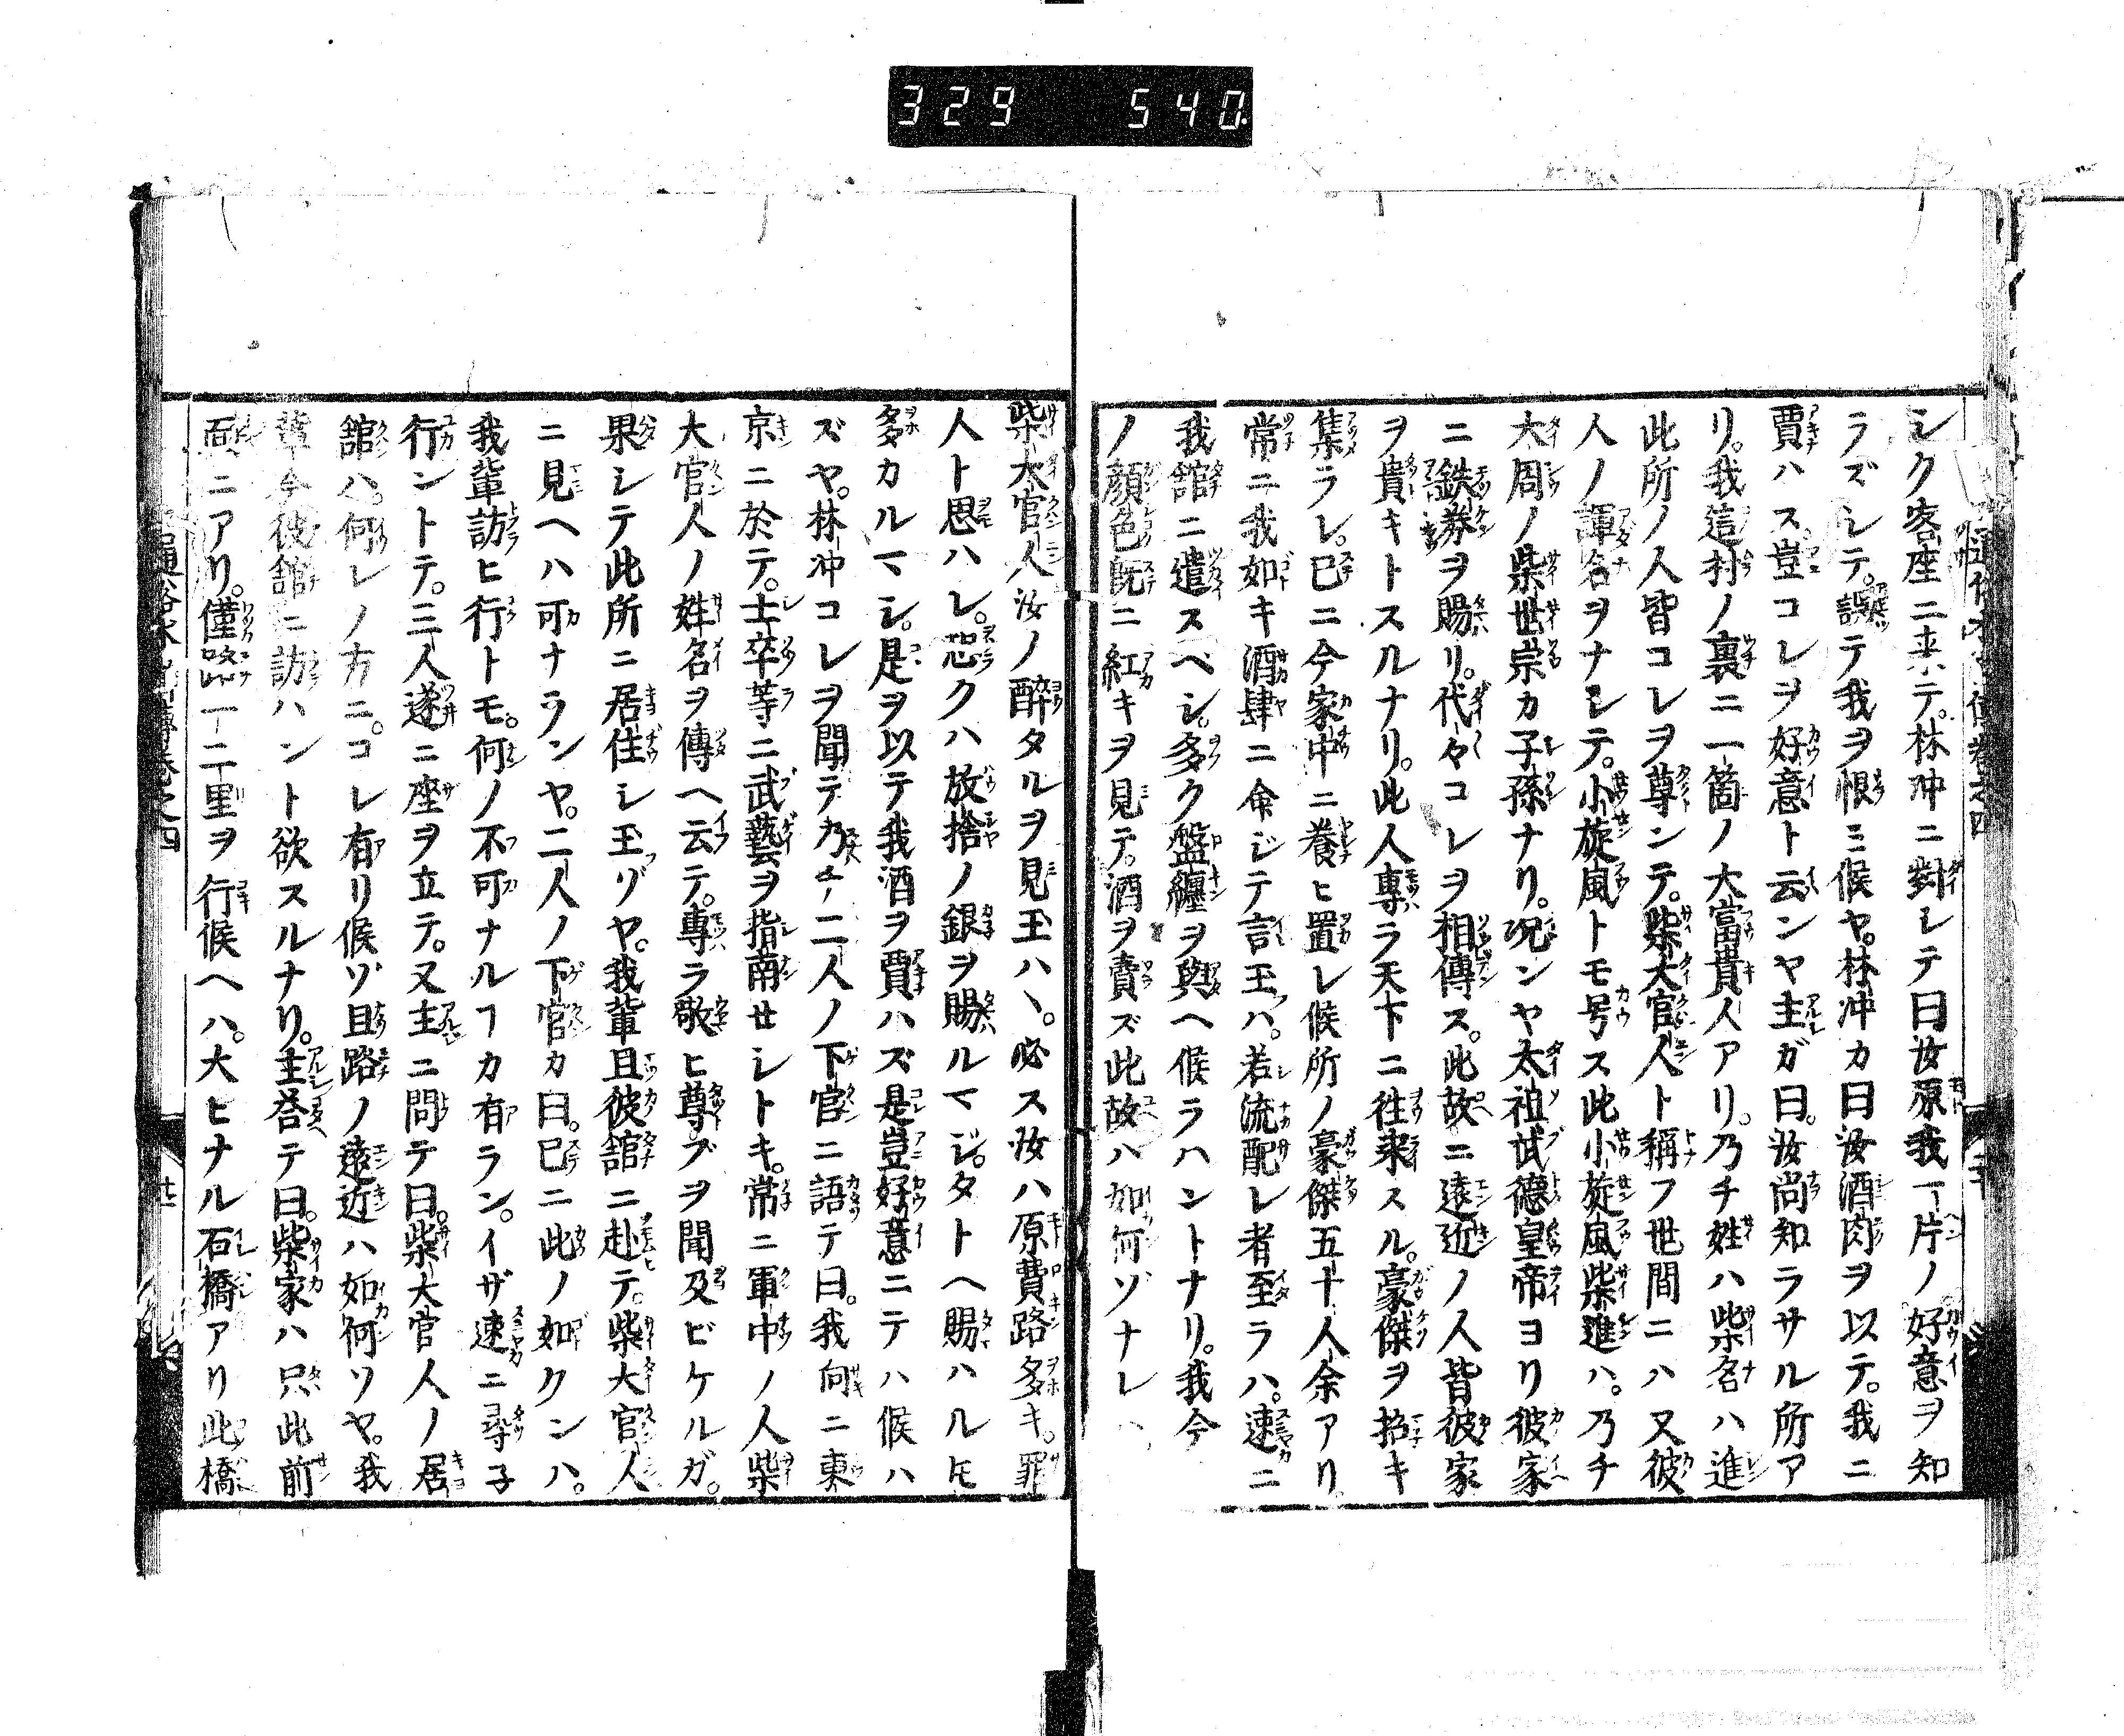 329 540.
シク客座ニ来テ。林冲ニ對シテ曰汝原我一片ノ好意ヲ知
ラズシテ。誤テ我ヲ恨ミ候ヤ。林冲カ曰汝酒肉ヲ以テ。我ニ
賈ハス豈コレヲ好意ト云ンヤ主ガ曰。汝尚知ラサル所ア
リ。我這村ノ裏ニ一箇ノ大富貴人アリ。乃チ姓ハ柴名ハ進
此所ノ人皆コレヲ尊ンテ。柴大官人ト稱フ世間ニハ又彼
人ノ諢名ヲナシテ。小旋風トモ号ス此小旋風柴進ハ。乃チ
大周ノ柴世宗カ子孫ナリ。况ンヤ太祖武德皇帝ヨリ彼家
ニ鉄券ヲ賜リ。代々コレヲ相傳ス。此故ニ遠近ノ人皆彼家
ヲ貴キトスルナリ。此人專ラ天下ニ往来スル。豪傑ヲ招キ
集ラレ。已ニ今家中ニ養ヒ置レ候所ノ豪傑五十人余アリ。
常ニ我如キ酒肆ニ命ジテ言玉ハ。若流配レ者至ラハ。速ニ
我舘ニ遣スベシ。多ク盤纏ヲ與ヘ候ラハントナリ。我今
ノ顔色既ニ紅キヲ見テ。酒ヲ賣ズ此故ハ如何ゾナレハ
柴大官人汝ノ醉タルヲ見玉ハヽ。必ス汝ハ原費路多キ。罪
人ト思ハレ。恐クハ放捨ノ銀ヲ賜ルマジ。タトヘ賜ハルヒ
多カルマシ。是ヲ以テ我酒ヲ賈ハズ是豈好意ニテハ候ハ
ズヤ。林冲コレヲ聞テ乃チ二人ノ下官ニ語テ曰。我向ニ東
京ニ於テ。士卒等ニ武藝ヲ指南セシトキ。常ニ軍中ノ人柴
大官人ノ姓名ヲ傳ヘ云テ。專ラ敬ヒ尊ブヲ聞及ビケルガ。
果シテ此所ニ居住シ玉ゾヤ。我輩且彼舘ニ赴テ。柴大官人
ニ見ヘハ可ナランヤ。二人ノ下官カ曰。已ニ此ノ如クンハ。
我輩訪ヒ行トモ。何ノ不可ナルヿカ有ラン。イザ速ニ尋子
行ントテ。三人遂ニ座ヲ立テ。又主ニ問テ曰。柴大官人ノ居
舘ハ。何レノ方ニ。コレ有リ候ゾ且路ノ遠近ハ如何ソヤ。我
輩今彼舘ニ訪ハント欲スルナリ。主荅テ曰。柴家ハ只此前
面ニアリ。僅路一二里ヲ行候ヘハ。大ヒナル石橋アリ此橋
通俗水滸傳卷之四